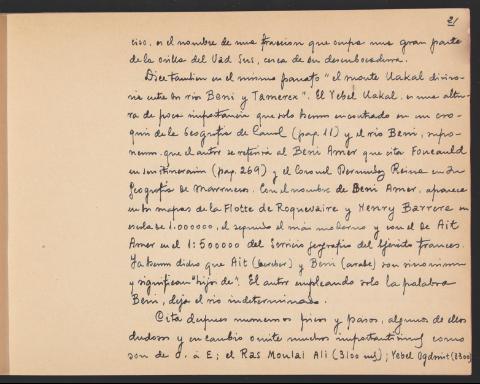 21
ciso, es el nombre de una fraccion que ocupa una gran parte
de la orilla del Uad Sus, cerca de su desembocadura.
Dice tambien en el mismo parrafo "el monte Uakal diviso-
rio entre los rios Beni y Tamerex". El Yebel Uakal, es una altu-
ra de poca importancia que solo hemos encontrado en un cro-
quis de la Geografia de Canal (pag. 11) y el rio Beni, supo-
nemos que el autor se referirá al Beni Amer que cita Foucauld
en su itinerario (pag. 269) y el Coronel Bermudez Reina en su
Geografia de Marruecos. Con el nombre de Beni Amer, aparece
en los mapas de la Flotte de Roquevaire y Henry Barrere en
escala de 1:000000, el segundo el más moderno y con el de Ait
Amer en el 1:500000 del Servicio geografico del Ejército frances.
Ya hemos dicho que Ait (bereber) y Beni (arabe) son sinonimos
y significan "hijo de". El autor empleando solo la palabra
Beni, deja el rio indeterminado.
Cita despues numerosos picos y pasos, algunos de ellos
dudosos y en cambio omite muchos importantisimos como
son de O. á E; el Ras Moulai Ali (3100 ms); Yebel Ogdimt (3300)